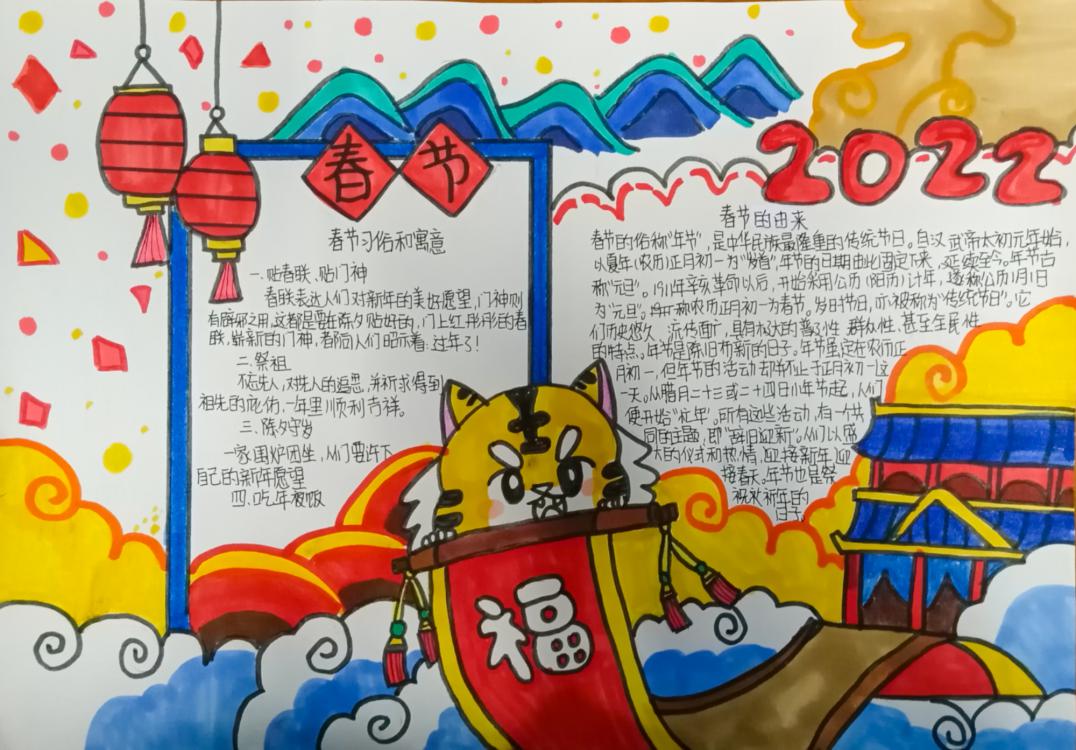 春节
2022
春节习俗和寓意
一.贴春联、贴门神
春联表达人们对新年的美好愿望,门神则
有辟邪之用,这都是要在除夕贴好的,门上红彤彤的春
联,崭新的门神,春向人们昭示着:过年了!
二.祭祖
不忘先人,对先人的追思,并祈求得到
祖先的庇佑,一年里顺利吉祥。
三、除夕守岁
一家围炉团坐,人们要许下
自己的新年愿望
四.吃年夜饭
春节的由来
春节的俗称“年节”,是中华民族最隆重的传统节日。自汉武帝太初元年始,
以夏年(农历)正月初一为“岁首”,年节的日期由此固定下来,延续至今。年节古
称“元旦”。1911年辛亥革命以后,开始采用公历(阳历)计年,遂称公历1月1日
为“元旦”。称农历正月初一为春节。岁时节日,亦被称为“传统节日”。它
们历史悠久、流传面广,具有极大的普及性、群众性、甚至全民性
的特点。年节是除旧布新的日子。年节虽定在农历正
月初一,但年节的活动却不止于正月初一这
一天。从腊月二十三或二十四日小年节起,人们
便开始“忙年”。所有这些活动,有一个共
同的主题,即“辞旧迎新”。人们以盛
大的仪式和热情,迎接新年,迎
接春天。年节也是祭
祝祈年的
日子。
福